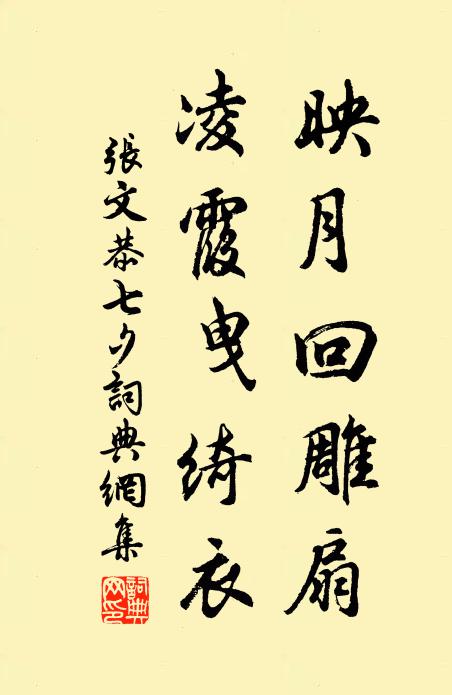 映月回雕扇
凌霞曳绮衣
張文恭七夕詞典網集
詞典网印